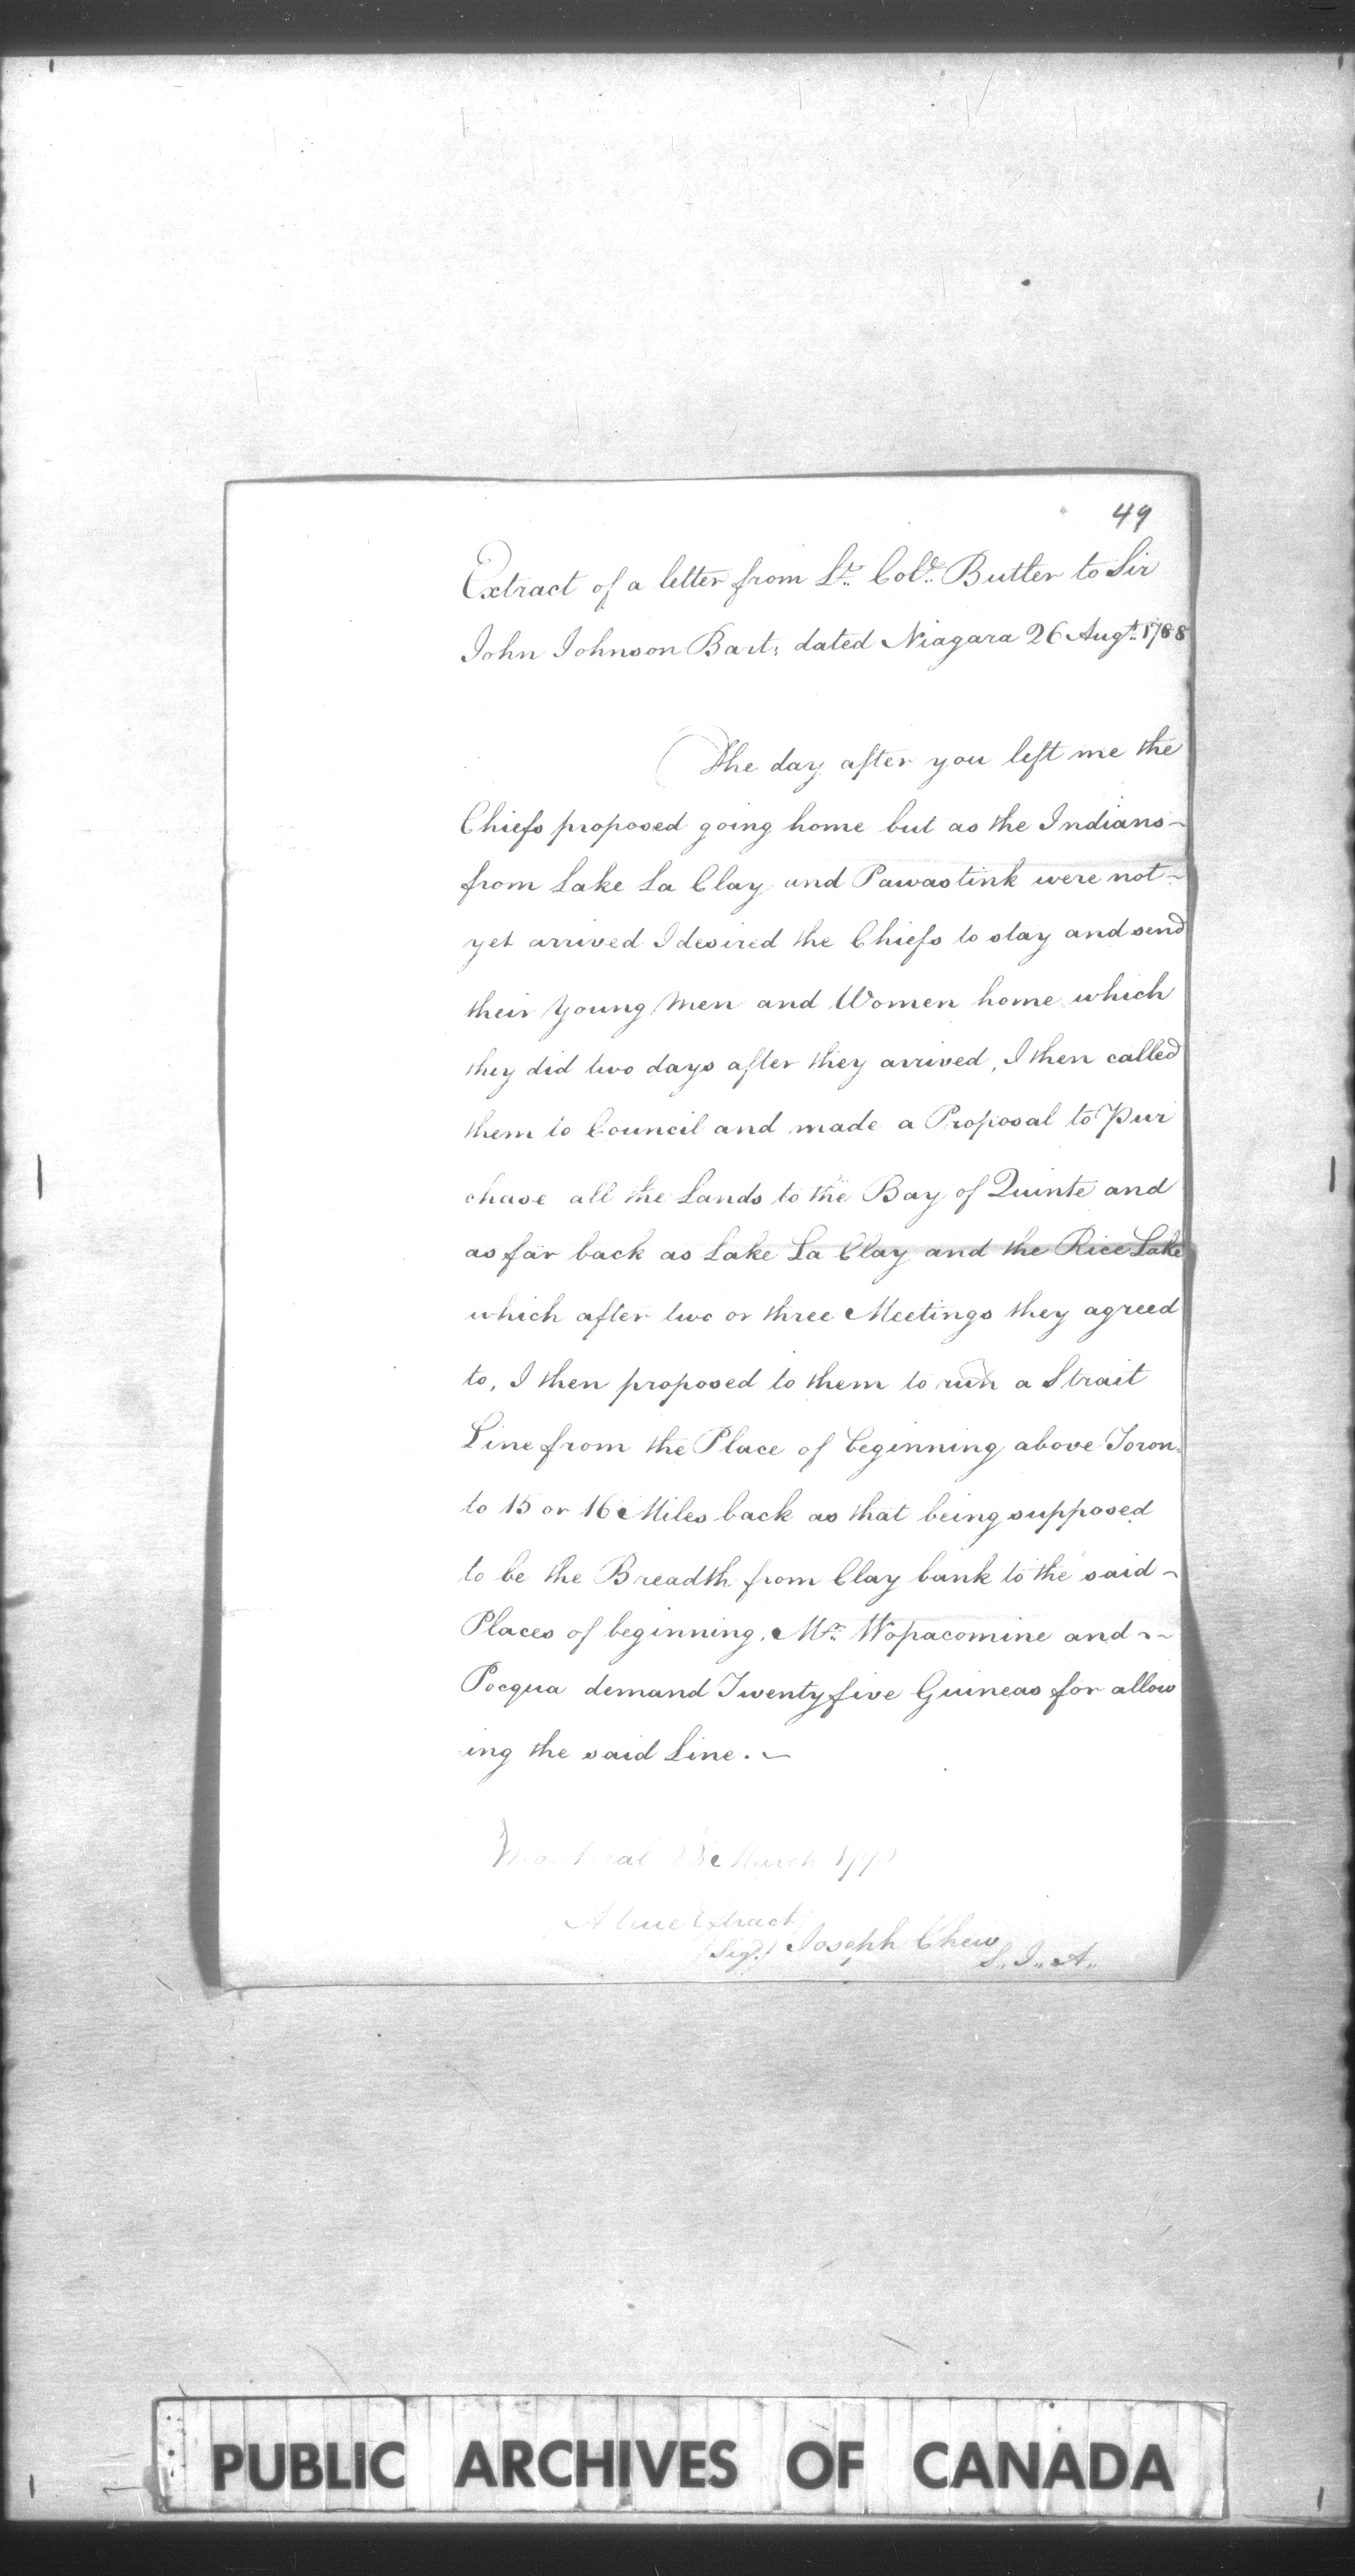 49
Extract of a letter from Lt. Colo. Butler to Sir
John Johnson Bart: dated Niagara 26 Augt. 1788
The day after you left me the
Chiefs proposed going home but as the Indians
from Lake La Clay and Pawastink were not
yet arrived I desired the Chiefs to stay and send
their Young Men and Women home which
they did two days after they arrived, I then called
them to Council and made a Proposal to Pur
chase all the Lands to the Bay of Quinte and
as far back as Lake La Clay and the Rice Lake
which after two or three Meetings they agreed
to, I then proposed to them to run a Strait
Line from the Place of beginning above Toron-
to 15 or 16 Miles back as that being supposed
to be the Breadth from Clay bank to the said
Places of beginning. Mr. Wopacomine and
Pocqua demand Twenty five Guineas for allow
ing the said Line.
Montreal March
A true Extract
(Sigd.) Joseph Chew
S. I. A.
PUBLIC ARCHIVES OF CANADA